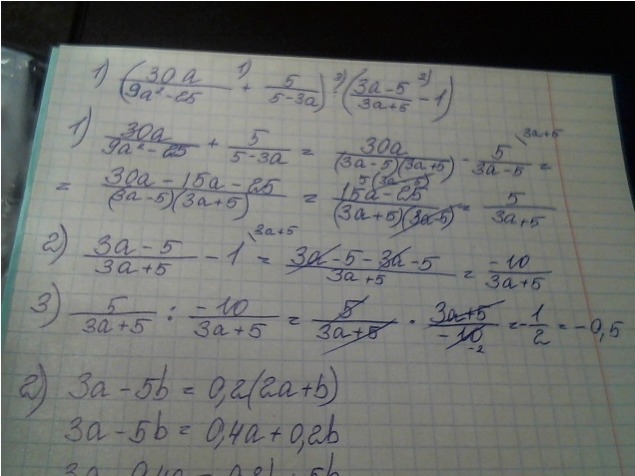 1) (30a/(9a²-25) +¹⁾ 5/(5-3a)) :³⁾ ((3a-5)/(3a+5) -²⁾ 1)
1) 30a/(9a²-25) + 5/(5-3a) = 30a/((3a-5)(3a+5)) - 5/(3a-5) \3a+5 =
= (30a-15a-25)/((3a-5)(3a+5)) = 5(3a-5) (15a-25)/((3a+5)(3a-5)) = 5/(3a+5)
2) (3a-5)/(3a+5) - 1 \3a+5 = (3a-5-3a-5)/(3a+5) = -10/(3a+5)
3) 5/(3a+5) : -10/(3a+5) = 5/(3a+5) · (3a+5)/-10 -2 = -1/2 = -0,5
2) 3a-5b = 0,2(2a+b)
3a-5b = 0,4a+0,2b
3a-0,4a = 0,2b+5b